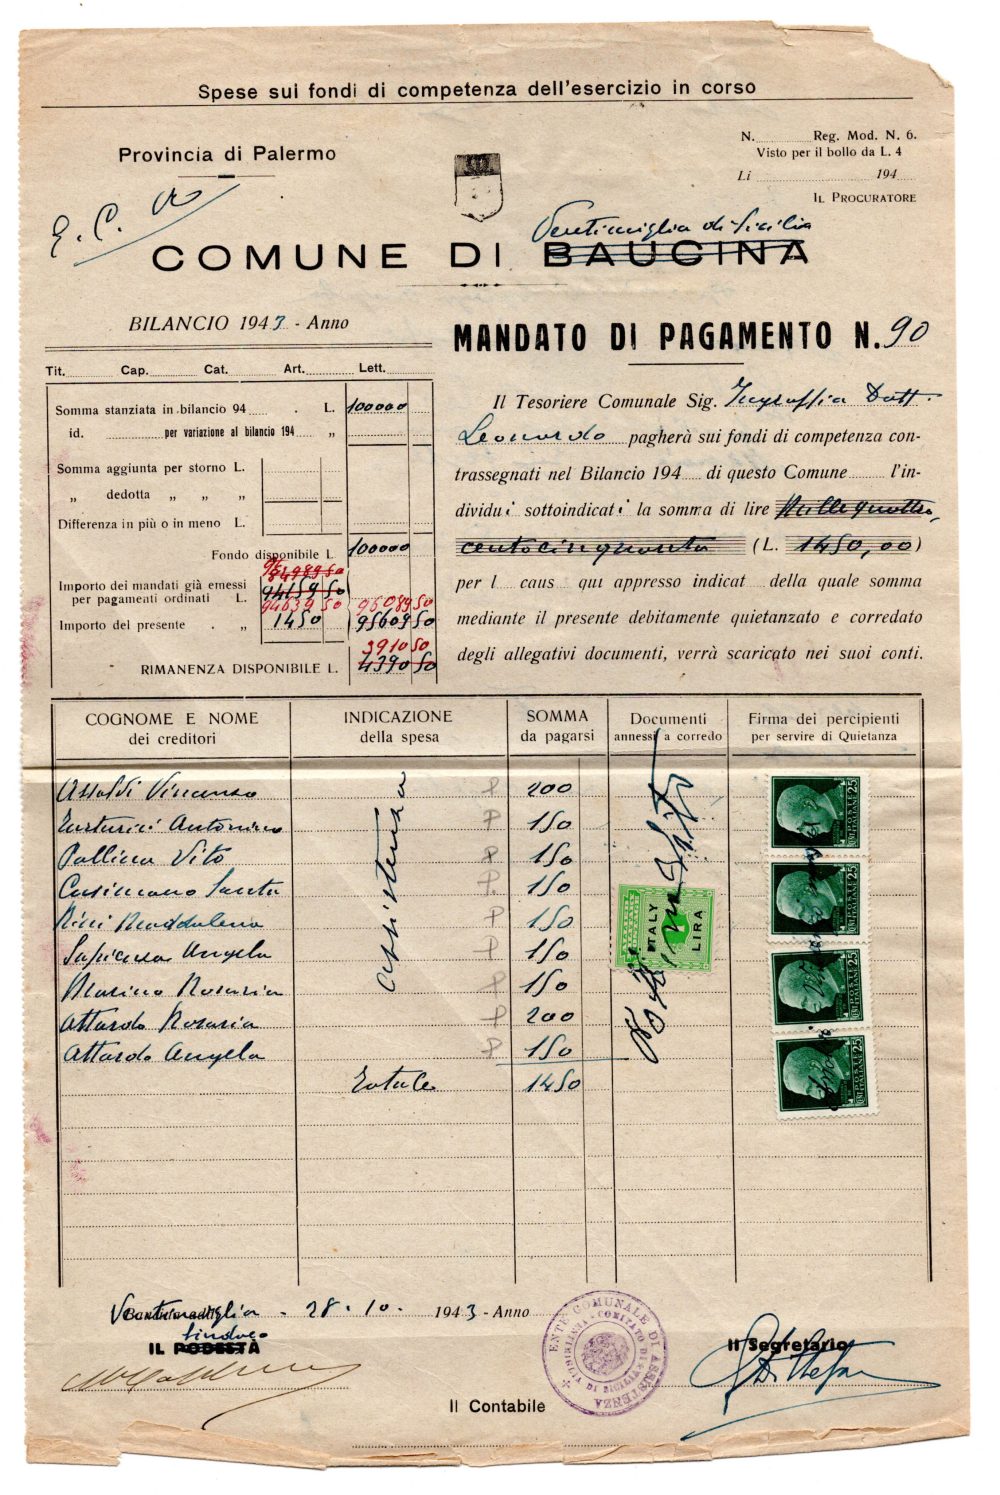 Spese sui fondi di competenza dell'esercizio in corso
Provincia di Palermo
N. Reg. Mod. N. 6.
Visto per il bollo da L. 4
Li 194
IL PROCURATORE
E. C. A
Ventimiglia di Sicilia
COMUNE DI BAUCINA
BILANCIO 1943 - Anno
MANDATO DI PAGAMENTO N. 90
Tit. Cap. Cat. Art. Lett.
Somma stanziata in bilancio 94 . L. 100000
id. per variazione al bilancio 194 „
Somma aggiunta per storno L.
„ dedotta „ „ „
Differenza in più o in meno L.
Fondo disponibile L. 100000
Importo dei mandati già emessi
per pagamenti ordinati L. 94159 50
94639 50 95089 50
Importo del presente . „ 1450 95609 50
3910 50
RIMANENZA DISPONIBILE L. 4390 50
Il Tesoriere Comunale Sig. Ingraffia Dott.
Leonardo pagherà sui fondi di competenza con-
trassegnati nel Bilancio 194 di questo Comune l'in-
dividui sottoindicati la somma di lire Millequattro
centocinquanta (L. 1450,00)
per l caus qui appresso indicat della quale somma
mediante il presente debitamente quietanzato e corredato
degli allegativi documenti, verrà scaricato nei suoi conti.
COGNOME E NOME
dei creditori
INDICAZIONE
della spesa
SOMMA
da pagarsi
Documenti
annessi a corredo
Firma dei percipienti
per servire di Quietanza
assistenza
Assaldi Vincenzo 200
Antonino 150
Pollina Vito 150
Cusimano Santa 150
Rini Maddalena 150
Sapienza Angela 150
Marino Rosaria 150
Attardo Rosaria 200
Attardo Angela 150
Totale 1450
ITALY
LIRA
POSTE ITALIANE 25
POSTE ITALIANE 25
POSTE ITALIANE 25
POSTE ITALIANE 25
Ventimiglia - 28.10. 1943 - Anno
Sindaco
IL PODESTÀ
ENTE COMUNALE DI ASSISTENZA
COMITATO DI
Il Segretario
Il Contabile